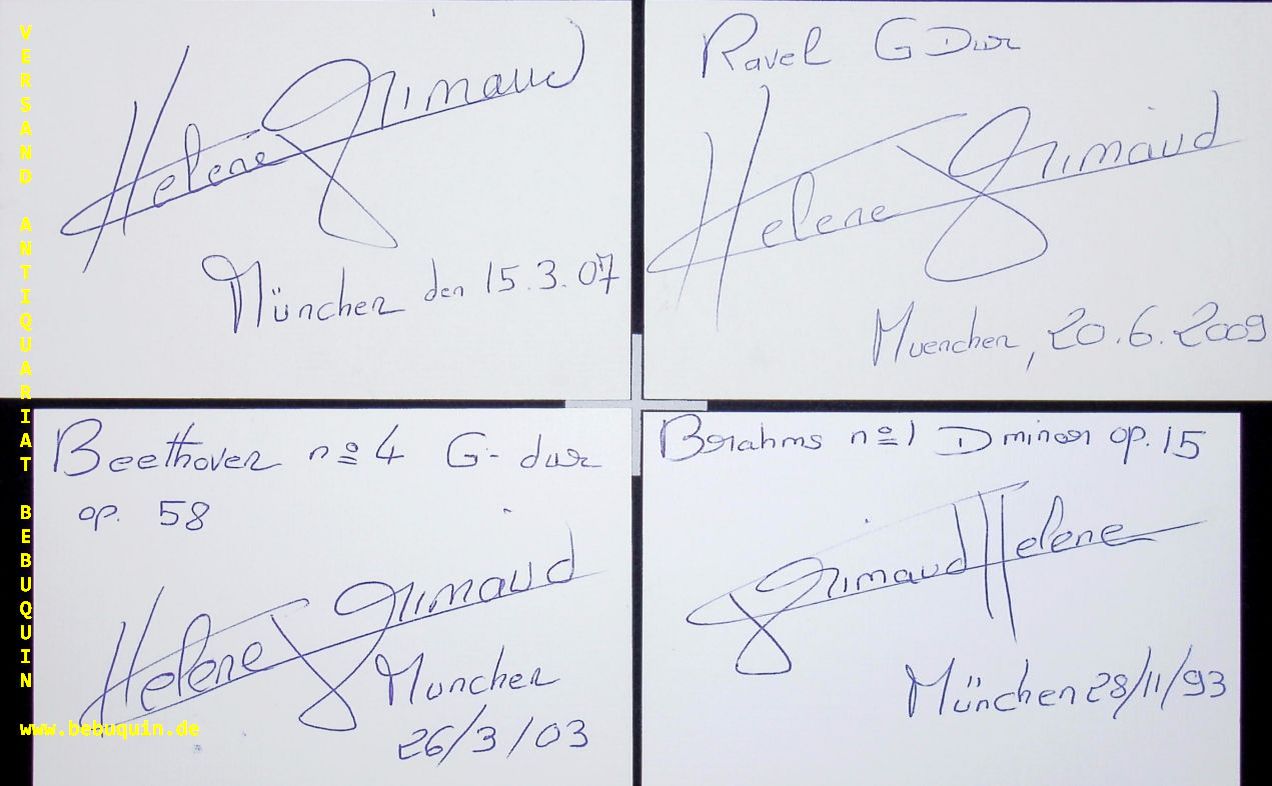 VERSAND ANTIQUARIAT BEBUQUIN
www.bebuquin.de
Helene Grimaud
München den 15.3.07
Ravel G Dur
Helene Grimaud
Muenchen, 20.6.2009
Beethoven nº 4 G-dur
op. 58
Helene Grimaud
Munchen
26/3/03
Brahms nº1 D minor op. 15
Grimaud Helene
München 28/11/93